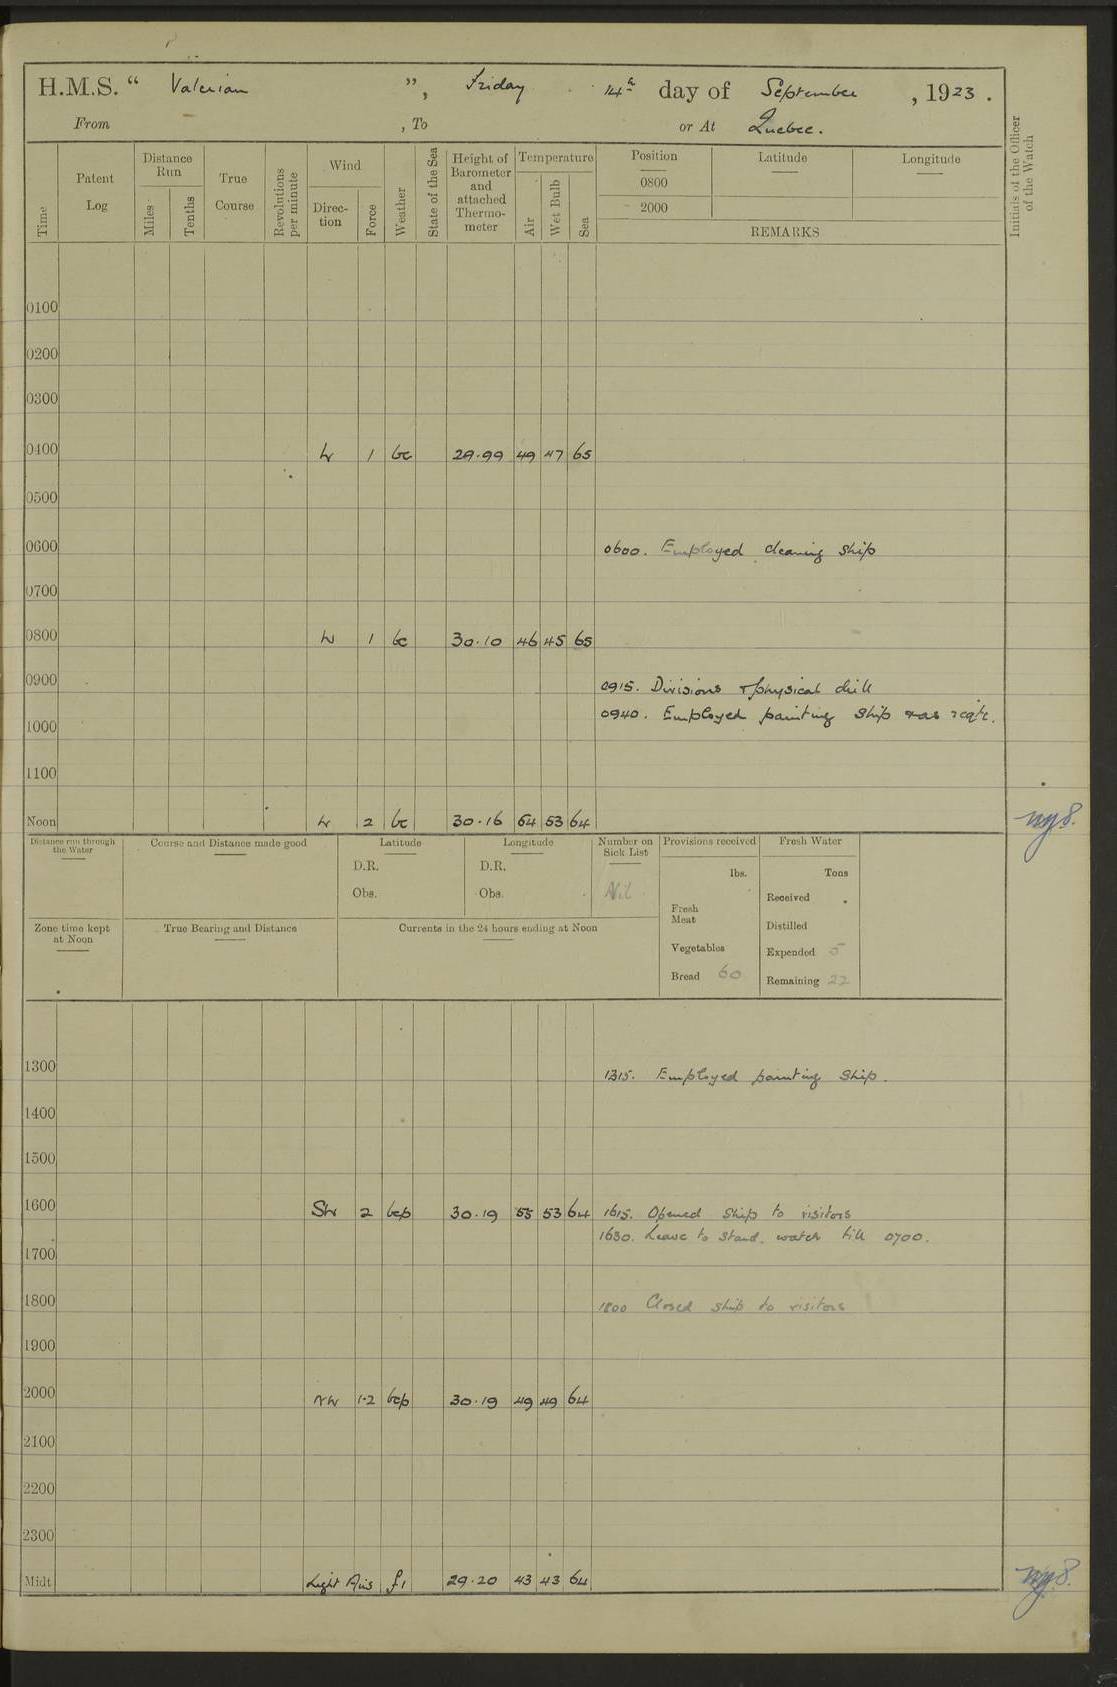 H.M.S. “ Valerian ”, Friday 14th day of September, 1923.
From - , To or At Quebec.
Time Patent Log Distance Run Miles Tenths True Course Revolutions per minute Wind Direc-tion Force Weather State of the Sea Height of Barometer and attached Thermo-meter Temperature Air Wet Bulb Sea Position Latitude Longitude Initials of the Officer of the Watch
0800
2000
REMARKS
0100
0200
0300
0400 W 1 bc 29.99 49 47 65
0500
0600 0600. Employed cleaning ship
0700
0800 W 1 bc 30.10 46 45 65
0900 0915. Divisions & physical drill
0940. Employed painting ship & as reqte.
1000
1100
Noon W 2 bc 30.16 64 53 64
Distance run through the Water Course and Distance made good Latitude Longitude Number on Sick List Provisions received Fresh Water
D.R. D.R. lbs. Tons
Obs. Obs. Nil Fresh Meat Received
Zone time kept at Noon True Bearing and Distance Currents in the 24 hours ending at Noon Distilled
Vegetables Expended 5
Bread 60 Remaining 22
1300 1315. Employed painting ship.
1400
1500
1600 SW 2 bcp 30.19 55 53 64 1615. Opened ship to visitors
1630. Leave to stand. watch till 0700.
1700
1800 1800 Closed ship to visitors
1900
2000 NW 1-2 bcp 30.19 49 49 64
2100
2200
2300
Midt Light Airs f1 29.20 43 43 64